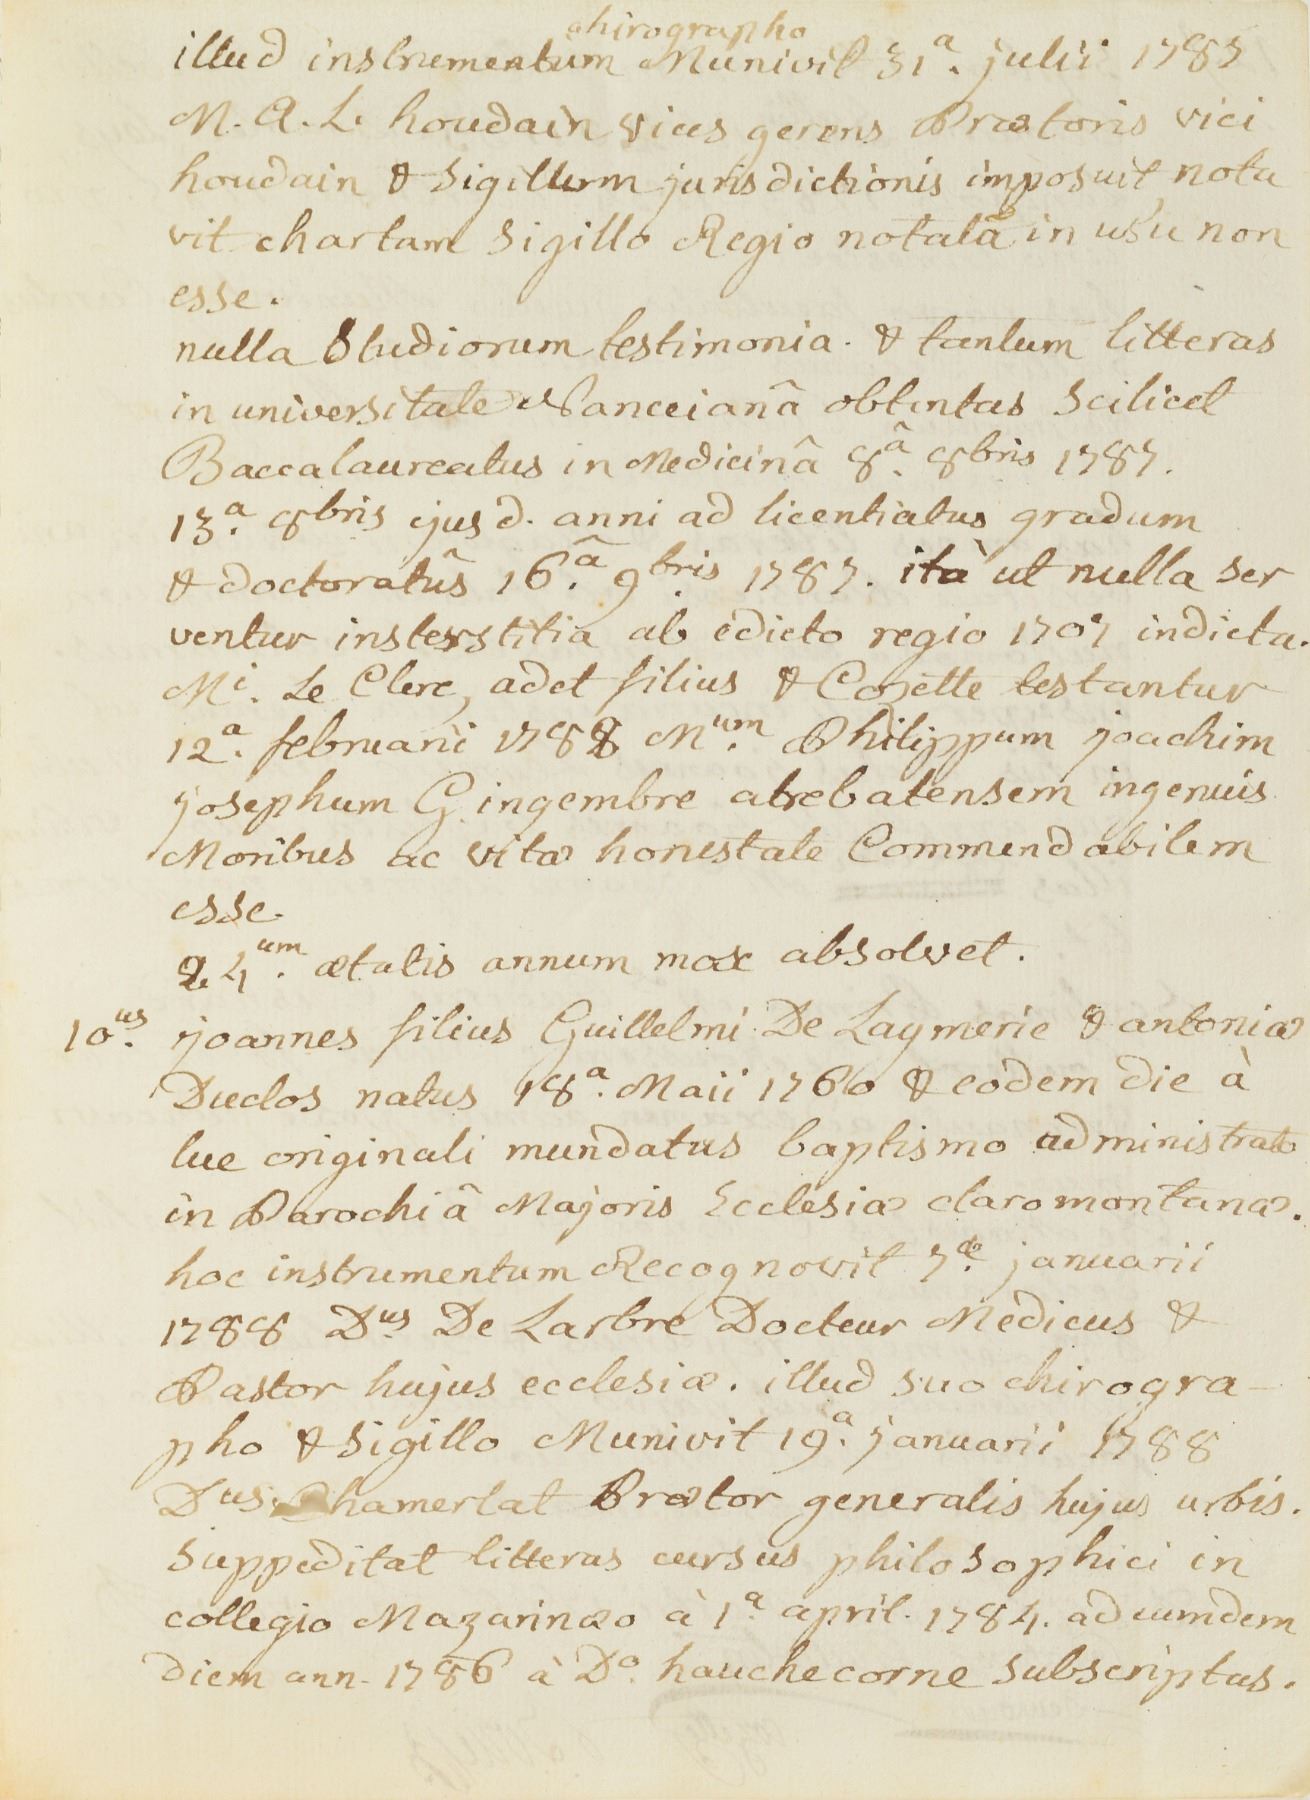 chirographo
illud instrumentum Munivit 31.a julii 1787
M. A. L. houdain vices gerens Prætoris vici
houdain & sigillum jurisdictionis imposuit nota
vit chartam sigillo Regio notatã in usu non
esse.
nulla studiorum testimonia. & tantum litteras
in universitate Nanceianâ obtentas scilicet
Baccalaureatus in Medicinâ 8.a 8bris 1787.
13.a 8bris ejusd. anni ad licentiatus gradum
& doctoratûs 16.a 9bris 1787. ità ut nulla ser
ventur insterstitia ab edicto regio 1707 indicta.
Mi. Le Clerc, adet filius & Cozette testantur
12.a februarii 1788 Mum. Philippum joachim
josephum Gingembre atrebatensem ingenuis
Moribus ac vitæ honestate Commendabilem
esse.
24um. ætatis annum mox absolvet.
10us. joannes filius Guillelmi De Laymerie & antoniæ
Duclos natus 18a. Maii 1760 & eodem die à
lue originali mundatus baptismo administrato
in Parochiâ Majoris Ecclesiæ claromontanæ.
hoc instrumentum Recognovit januarii
1788 Dus De Larbre Docteur Medicus &
Pastor hujus ecclesiæ. illud suo chirogra-
pho & sigillo Munivit 19.a januarii 1788
Dus. Chamerlat Prætor generalis hujus urbis.
suppeditat litteras cursus philosophici in
collegio Mazarinæo à 1.a april. 1784. ad eumdem
diem ann. 1786 à Do. hauchecorne subscriptas.